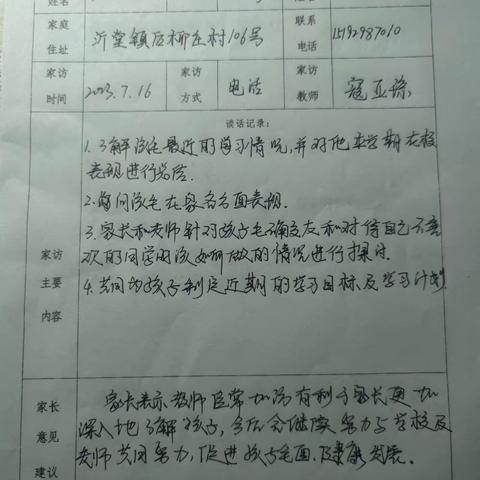 姓名
家庭 住址 沂堂镇后柳庄村106号 联系 电话 15192987010
家访 时间 2023.7.16 家访 方式 电话 家访 教师 寇亚琼
谈话记录:
1.了解该生最近的学习情况,并对他本学期在校
表现进行总结.
2.询问该生在家各方面表现.
3.家长和老师针对孩子正确交友和对待自己不喜
欢的同学应该如何做的情况进行探讨.
4.共同为孩子制定近期的学习目标及学习计划.
家访
主要
内容
家长
意见
建议
家长表示教师经常加访有利于家长更加
深入地了解孩子,今后会继续努力与学校及
老师共同努力,促进孩子全面、健康发展.